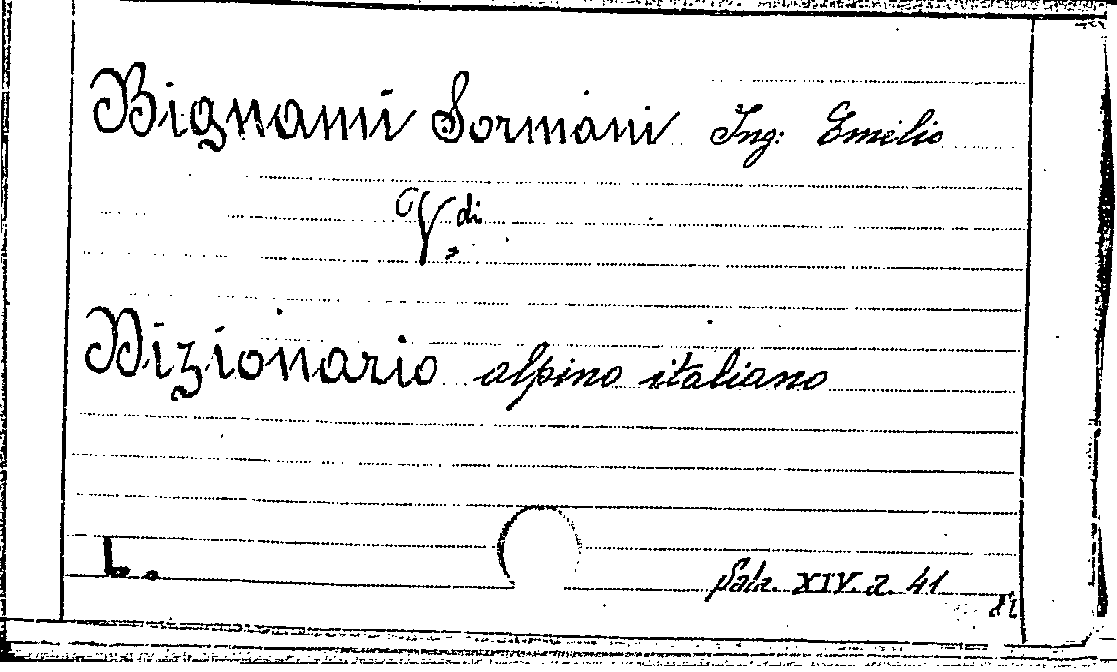 Bignami Sormani Ing: Emilio
Vdi
Dizionario alpino italiano
L.
Sala. XIV. a. 41